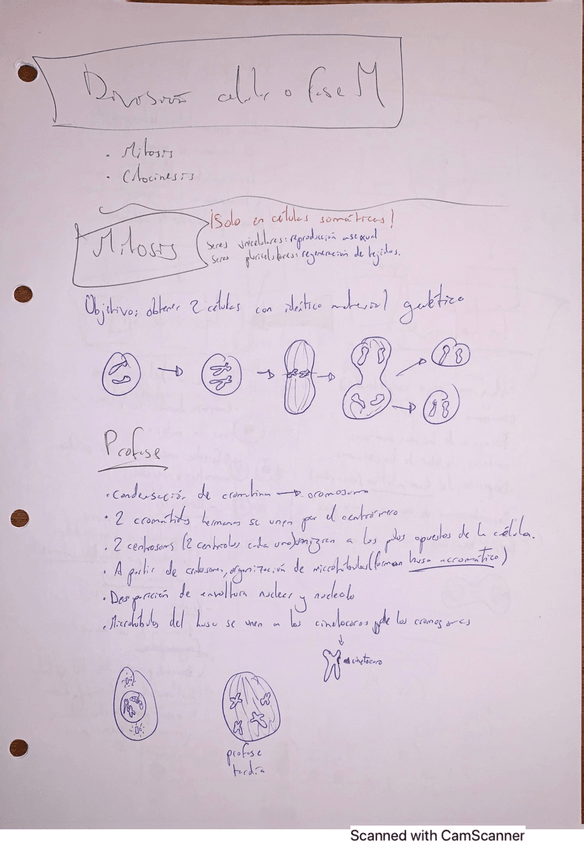 División celular o fase M
· Mitosis
· Citocinesis
Mitosis
¡Solo en células somáticas!
Seres unicelulares: reproducción asexual
Seres pluricelulares: regeneración de tejidos.
Objetivo: obtener 2 células con idéntico material genético
Profase
· Condensación de cromatina → cromosoma
· 2 cromátidas hermanas se unen por el centrómero
· 2 centrosomas (2 centriolos cada uno) migran a los polos opuestos de la célula.
· A partir de centrosoma, organización de microtúbulos (forman huso acromático)
· Desaparición de envoltura nuclear y nucleolo
· Microtúbulos del huso se unen a los cinetocoros de los cromosomas
cinetocoro
profase
tardía
Scanned with CamScanner